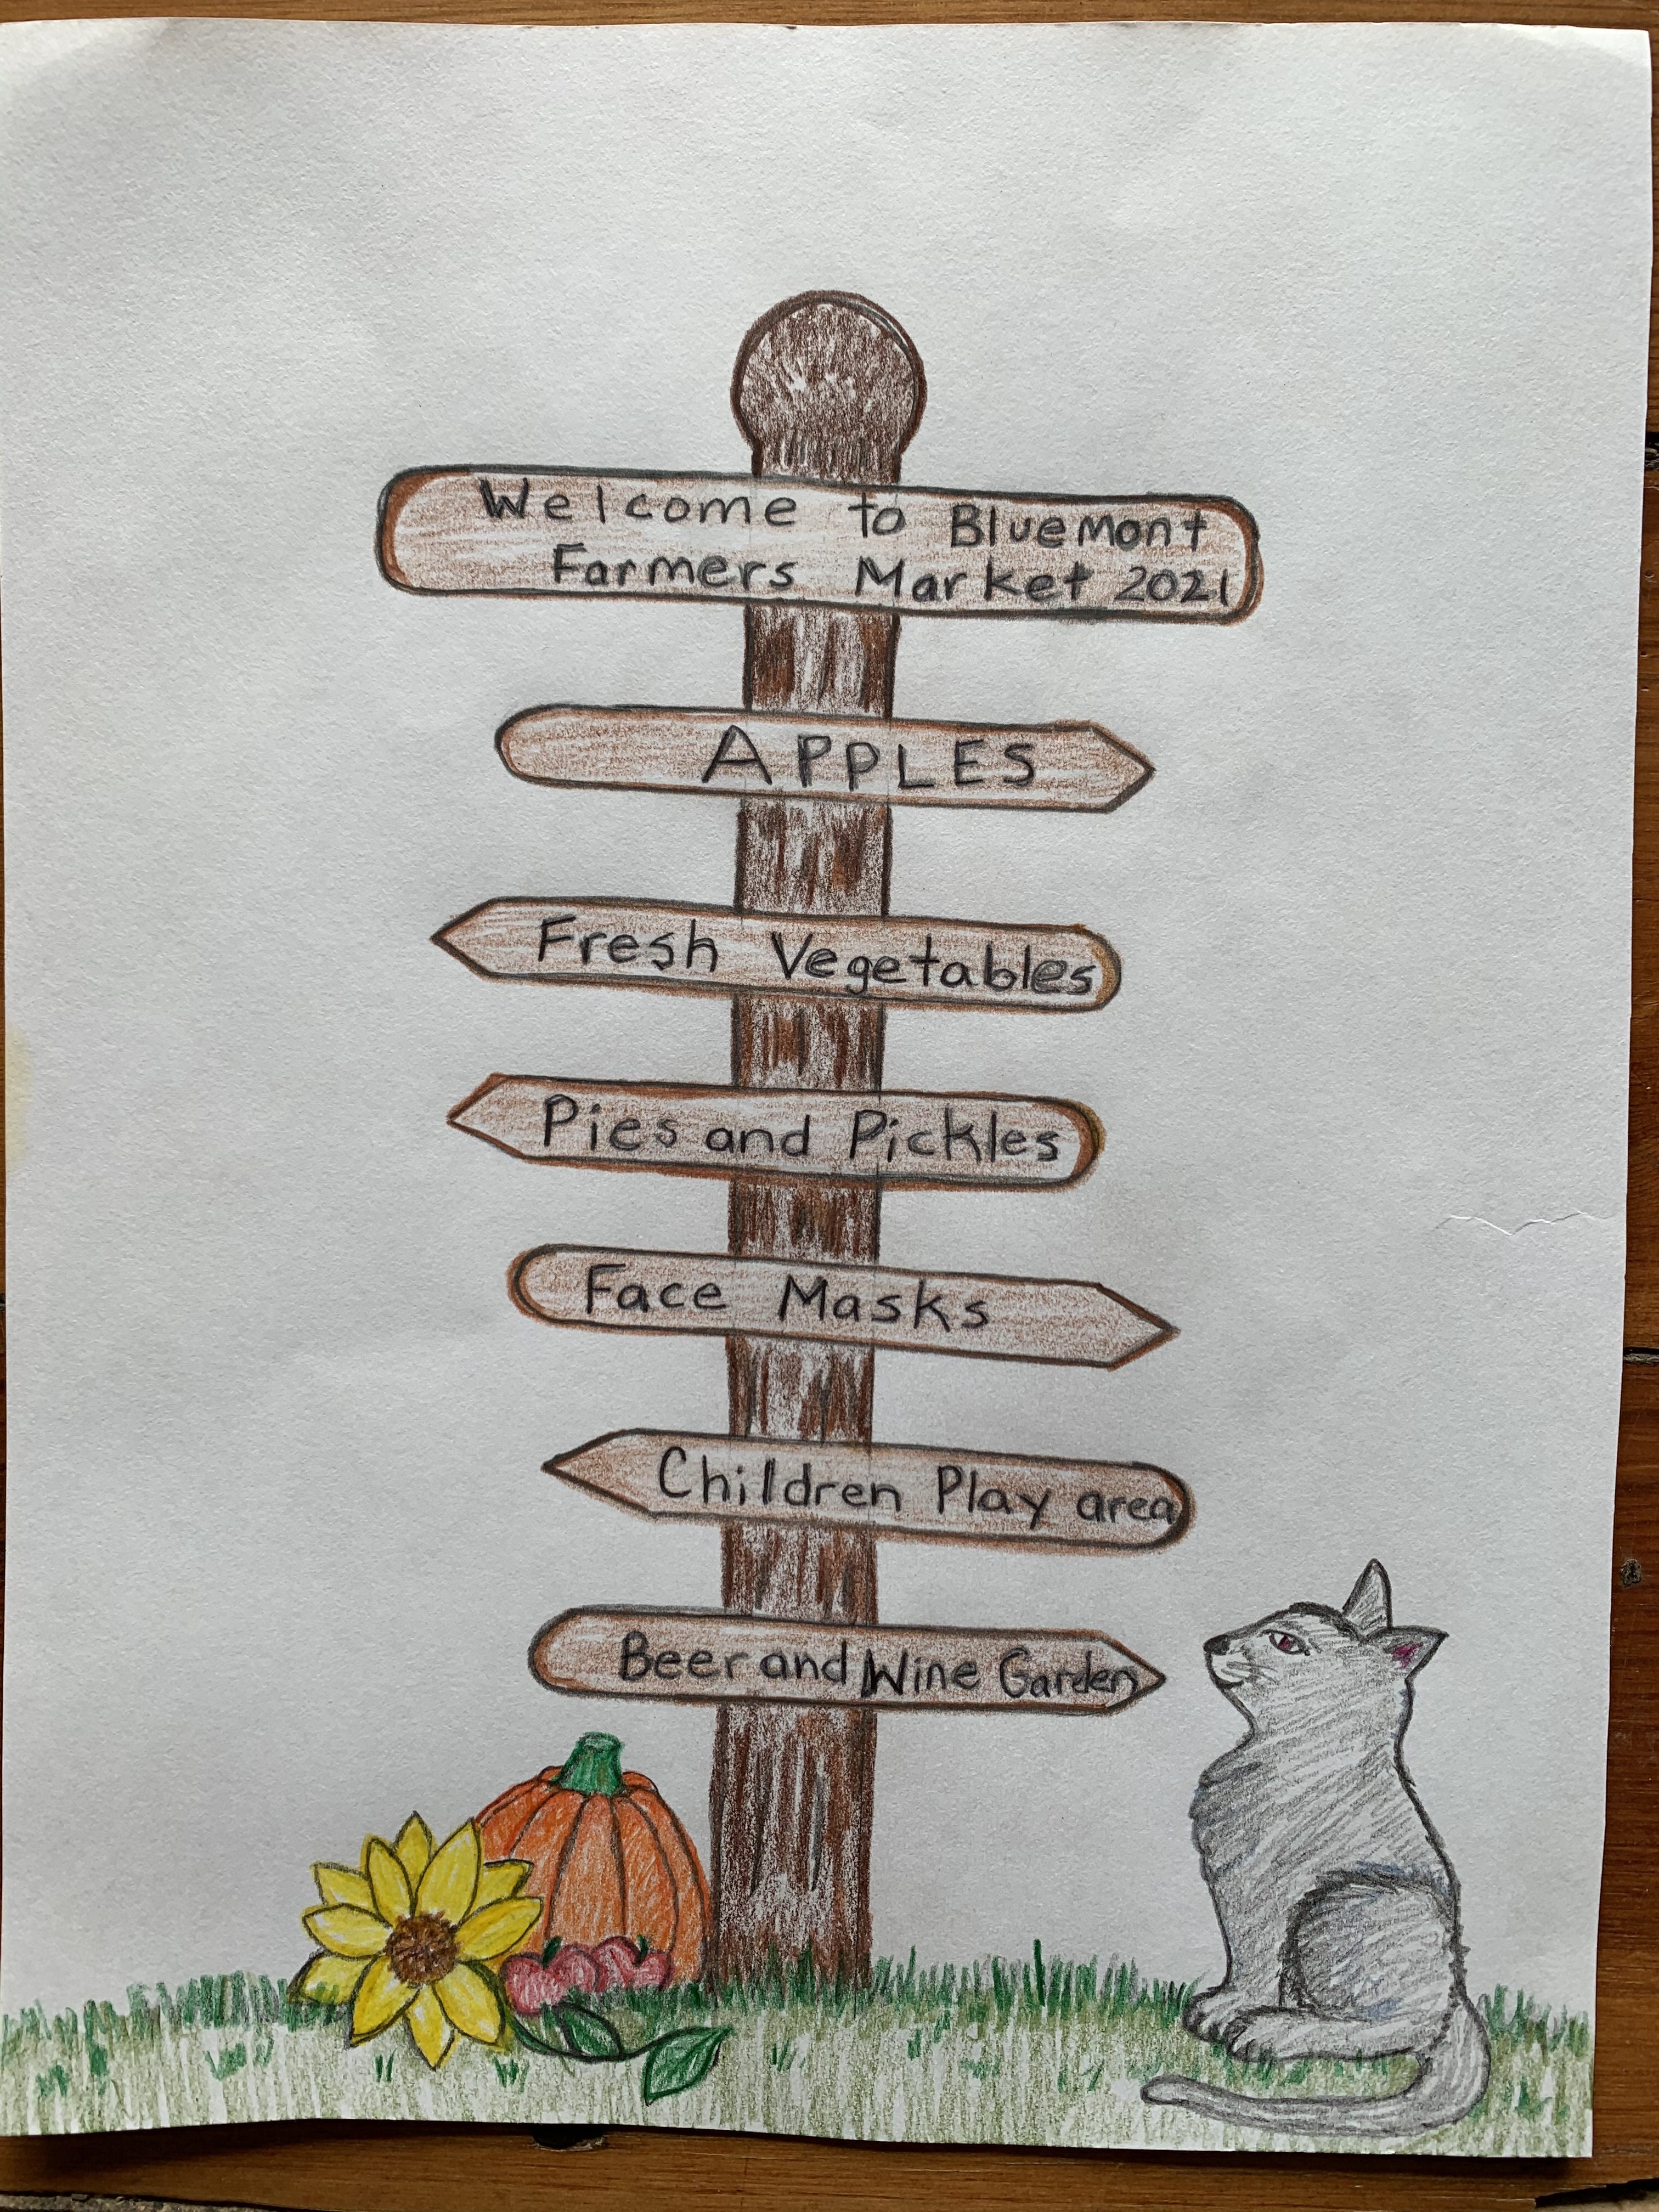 Welcome to Bluemont
Farmers Market 2021
APPLES
Fresh Vegetables
Pies and Pickles
Face Masks
Children Play area
Beer and Wine Garden